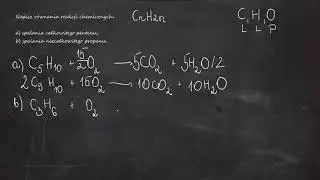 Napisz równania reakcji chemicznych: CnH2n C, H, O
L L P
a) spalania całkowitego pentenu,
b) spalania niecałkowitego propenu.
a) C₅H₁₀ + 15/2 O₂ → 5CO₂ + 5H₂O /·2
2 C₅H₁₀ + 15O₂ → 10CO₂ + 10H₂O
b) C₃H₆ + O₂